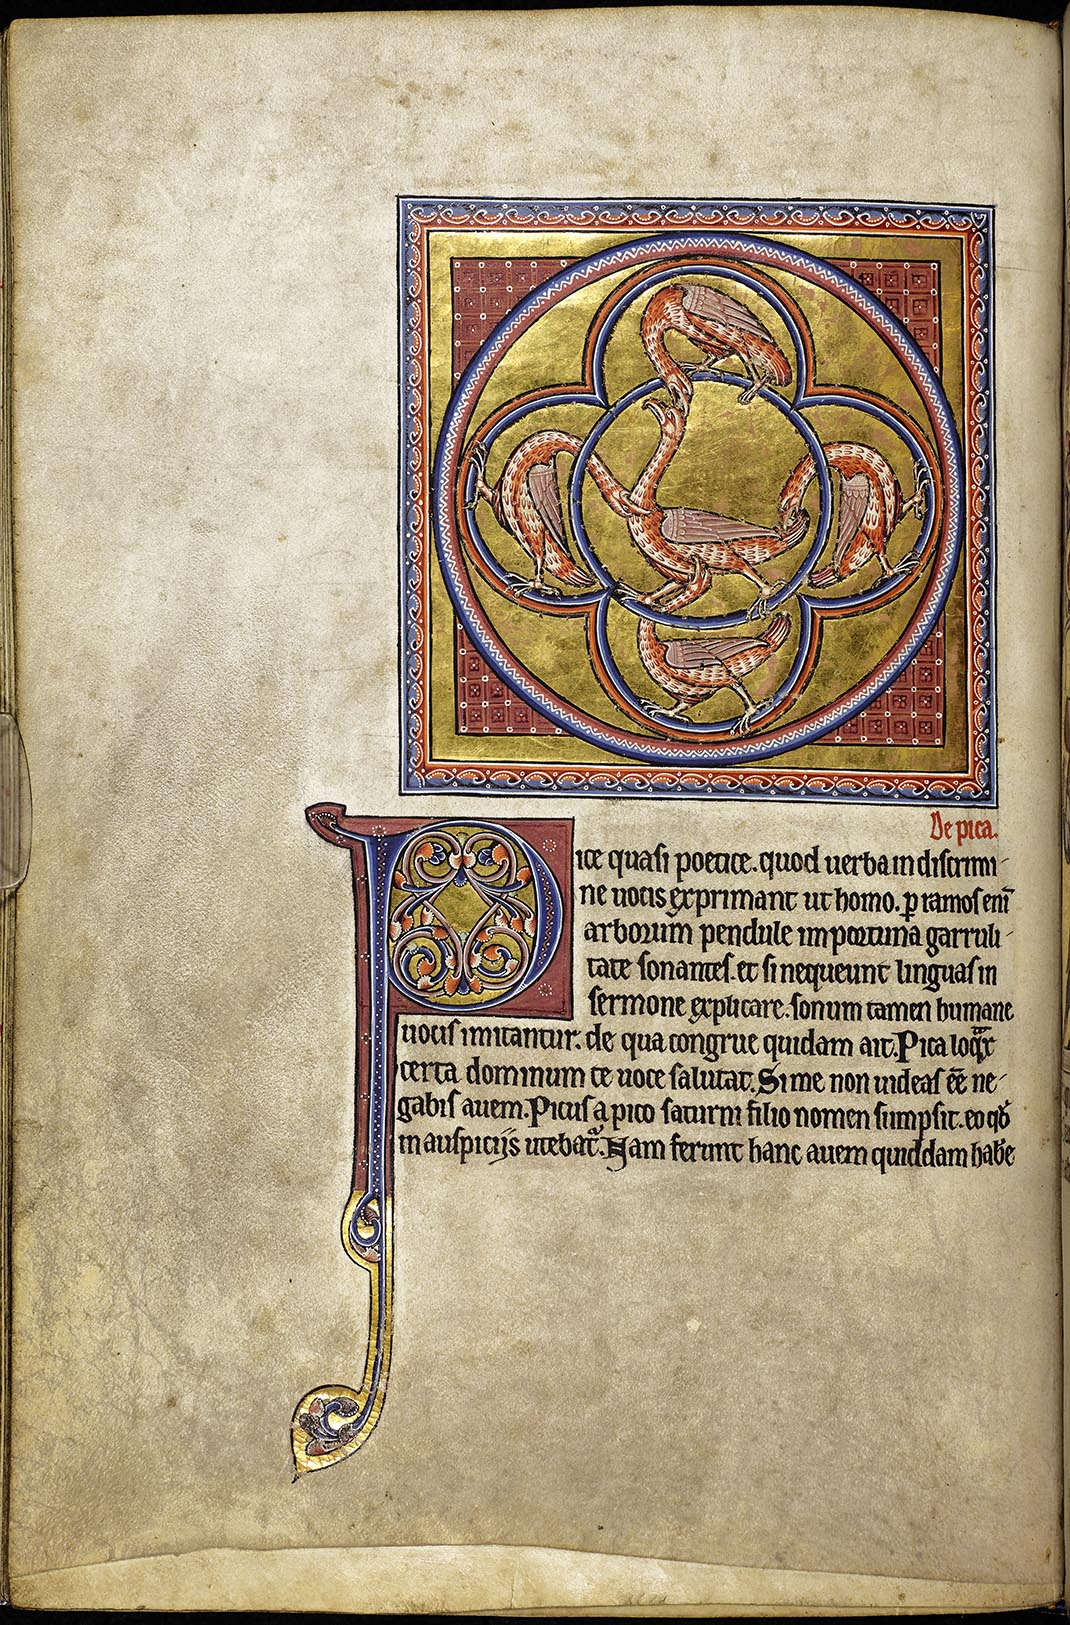 De pica.
Pice quasi poetice. quod uerba in discrimi-
ne uocis exprimant ut homo. ꝑ ramos eni̅
arborum pendule importuna garruli-
tate sonantes. et si nequeunt linguas in
sermone explicare. sonum tamen humane
uocis imitantur. de qua congrue quidam ait. Pica loqͣx
certa dominum te uoce salutat. Si me non uideas ee̅ ne-
gabis auem. Picus a pico saturni filio nomen sumpsit. eo qď
in auspicijs utebat᷑. Nam ferunt hanc auem quiddam hab̅e